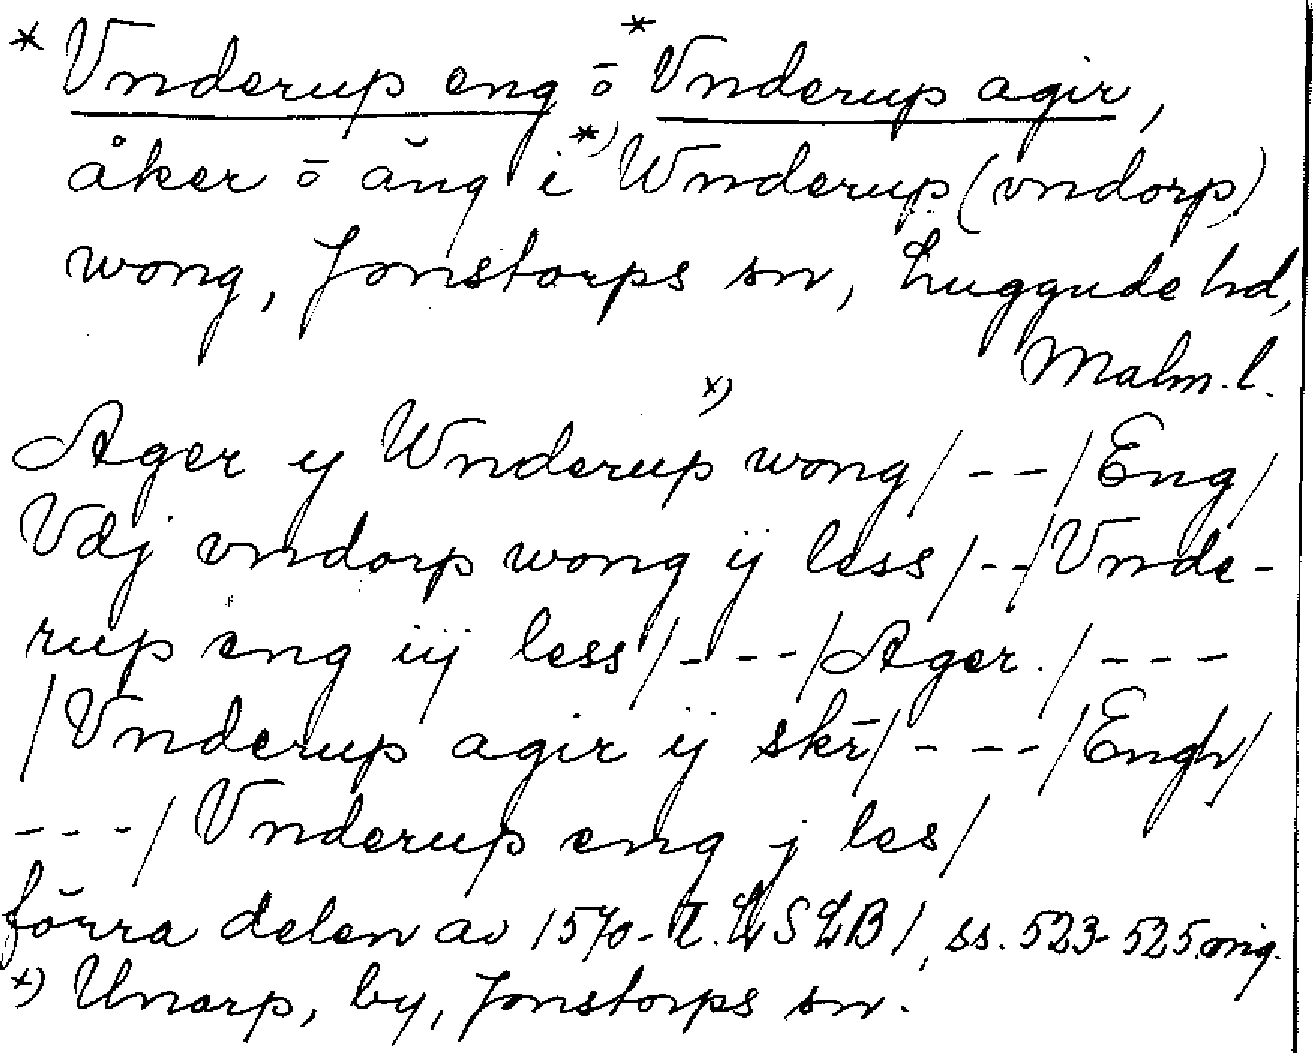 * Vnderup eng ō *Vnderup agir,
åker ō äng i *) Wnderup (vndorp)
wong, Jonstorps sn, Luggude hd,
Malm. l.
Ager y Wnderup x) wong/ -- /Eng/
Vdj vndorp wong ij less/--/Vnde-
rup eng iij less/---/Ager./---
/Vnderup agir ij skr̄/---/Engh/
---/Vnderup eng j les/
förra delen av 1570-t. LSLB1, ss. 523-525 orig.
x) Unarp, by, Jonstorps sn.